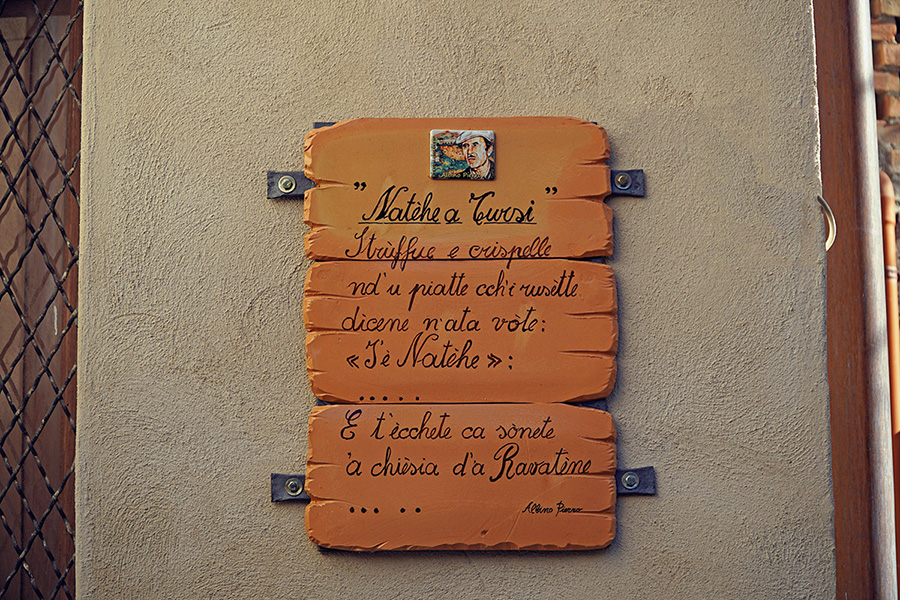 "Natèhe a Tursi"
Strùffue e crispelle
nd'u piatte cch'i rusètte
dìcene n'ata vòte:
«J'è Natèhe»;
.....
E t'ècchete ca sònete
'a chièsia d'a Ravatène
... ..
Albino Pierro